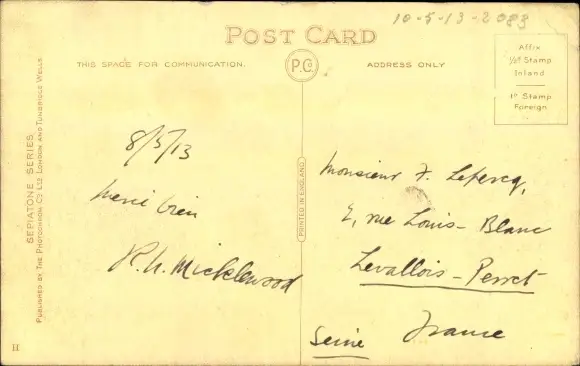 10-5-13-2083
POST CARD
THIS SPACE FOR COMMUNICATION.
P.Co.
ADDRESS ONLY
Affix
½d Stamp
Inland
1d Stamp
Foreign
SEPIATONE SERIES
PUBLISHED BY THE PHOTOCHROM CO LTD LONDON AND TUNBRIDGE WELLS
PRINTED IN ENGLAND
8/5/13
merci bien
R.N. Micklewood
Monsieur F. Lepercq,
2, rue Louis-Blanc
Levallois-Perret
Seine France
H